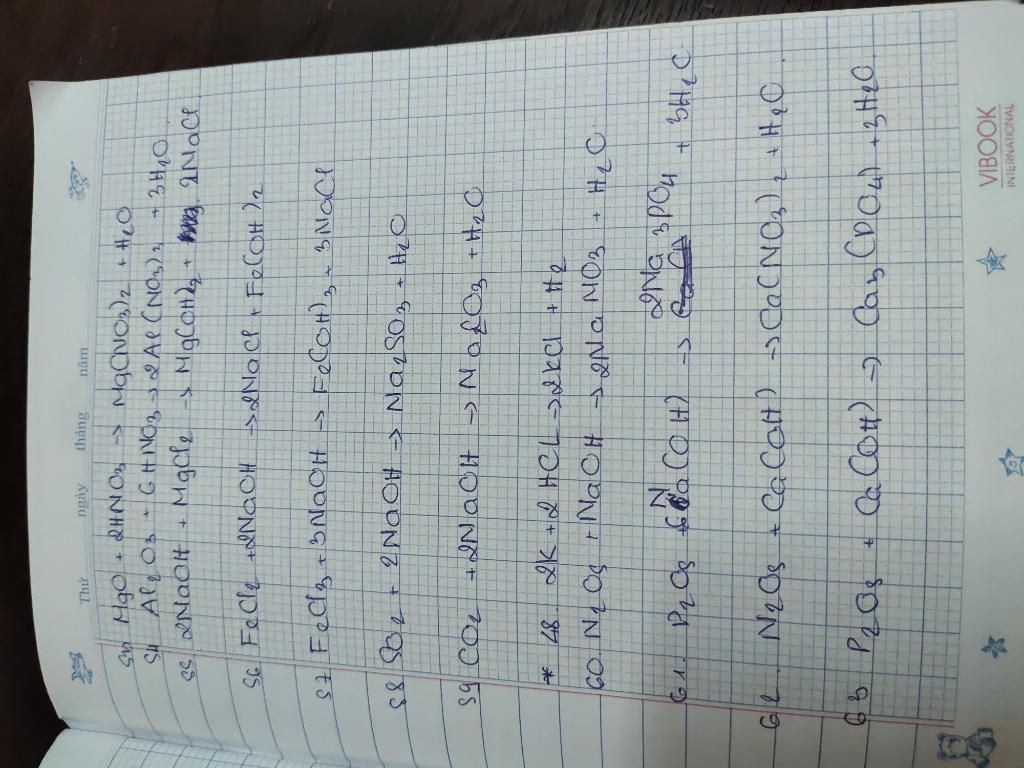 Thứ ngày tháng năm
50 MgO + 2HNO3 -> Mg(NO3)2 + H2O
54 Al2O3 + 6HNO3 -> 2Al(NO3)3 + 3H2O
55 2NaOH + MgCl2 -> Mg(OH)2 + 2NaCl
56 FeCl2 + 2NaOH -> 2NaCl + Fe(OH)2
57 FeCl3 + 3NaOH -> Fe(OH)3 + 3NaCl
58 SO2 + 2NaOH -> Na2SO3 + H2O
59 CO2 + 2NaOH -> Na2CO3 + H2O
* 48. 2K + 2HCl -> 2KCl + H2
60. N2O5 + NaOH -> 2NaNO3 + H2O
61. P2O5 + 6Na(OH) -> 2Na3PO4 + 3H2O
62. N2O5 + Ca(OH) -> Ca(NO3)2 + H2O
63 P2O5 + Ca(OH) -> Ca3(PO4) + 3H2O
VIBOOK
INTERNATIONAL